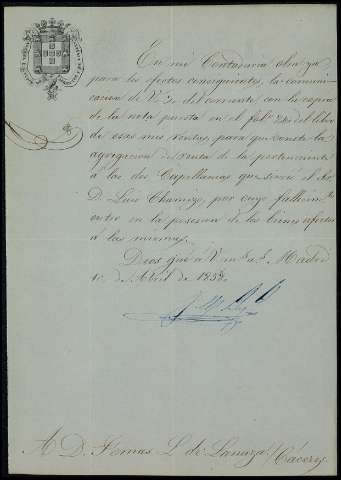 En mi Contaduria obra ya
para los efectos consiguientes, la comuni-
cacion de V. de del corriente con la copia
de la nota puesta en el folº del libro
de esas mis rentas, para que conste la
agregacion de renta de la perteneciente
á las dos Capellanias que sirvió el
D. Luis Chamizo, por cuyo fallecimto
entro en la posesion de los bienes afectos
á las mismas.
Dios gue á V. ms. as. Madrid
1º de Abril de 1858.
A D. Tomas L. de Lanuza / Caceres